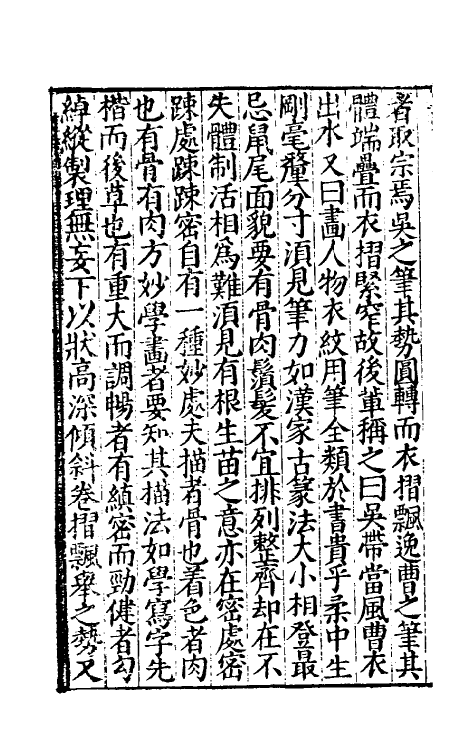 者取宗焉吳之筆其勢圓轉而衣摺飄逸曹之筆其
體端疊而衣摺緊窄故後軰稱之曰吳帶當風曹衣
出水又曰畵人物衣紋用筆全類於書貴乎柔中生
剛毫釐分寸湏見筆力如漢家古篆法大小相登最
忌鼠尾面貌要有骨肉鬚髮不宜排列整齊却在不
失體制活相爲難湏見有根生苗之意亦在密處密
踈處踈踈密自有一種妙處夫描者骨也着色者肉
也有骨有肉方妙學畵者要知其描法如學寫字先
楷而後草也有重大而調暢者有縝密而勁健者勾
綽縱製理無妄下以狀高深傾斜卷摺飄舉之勢又